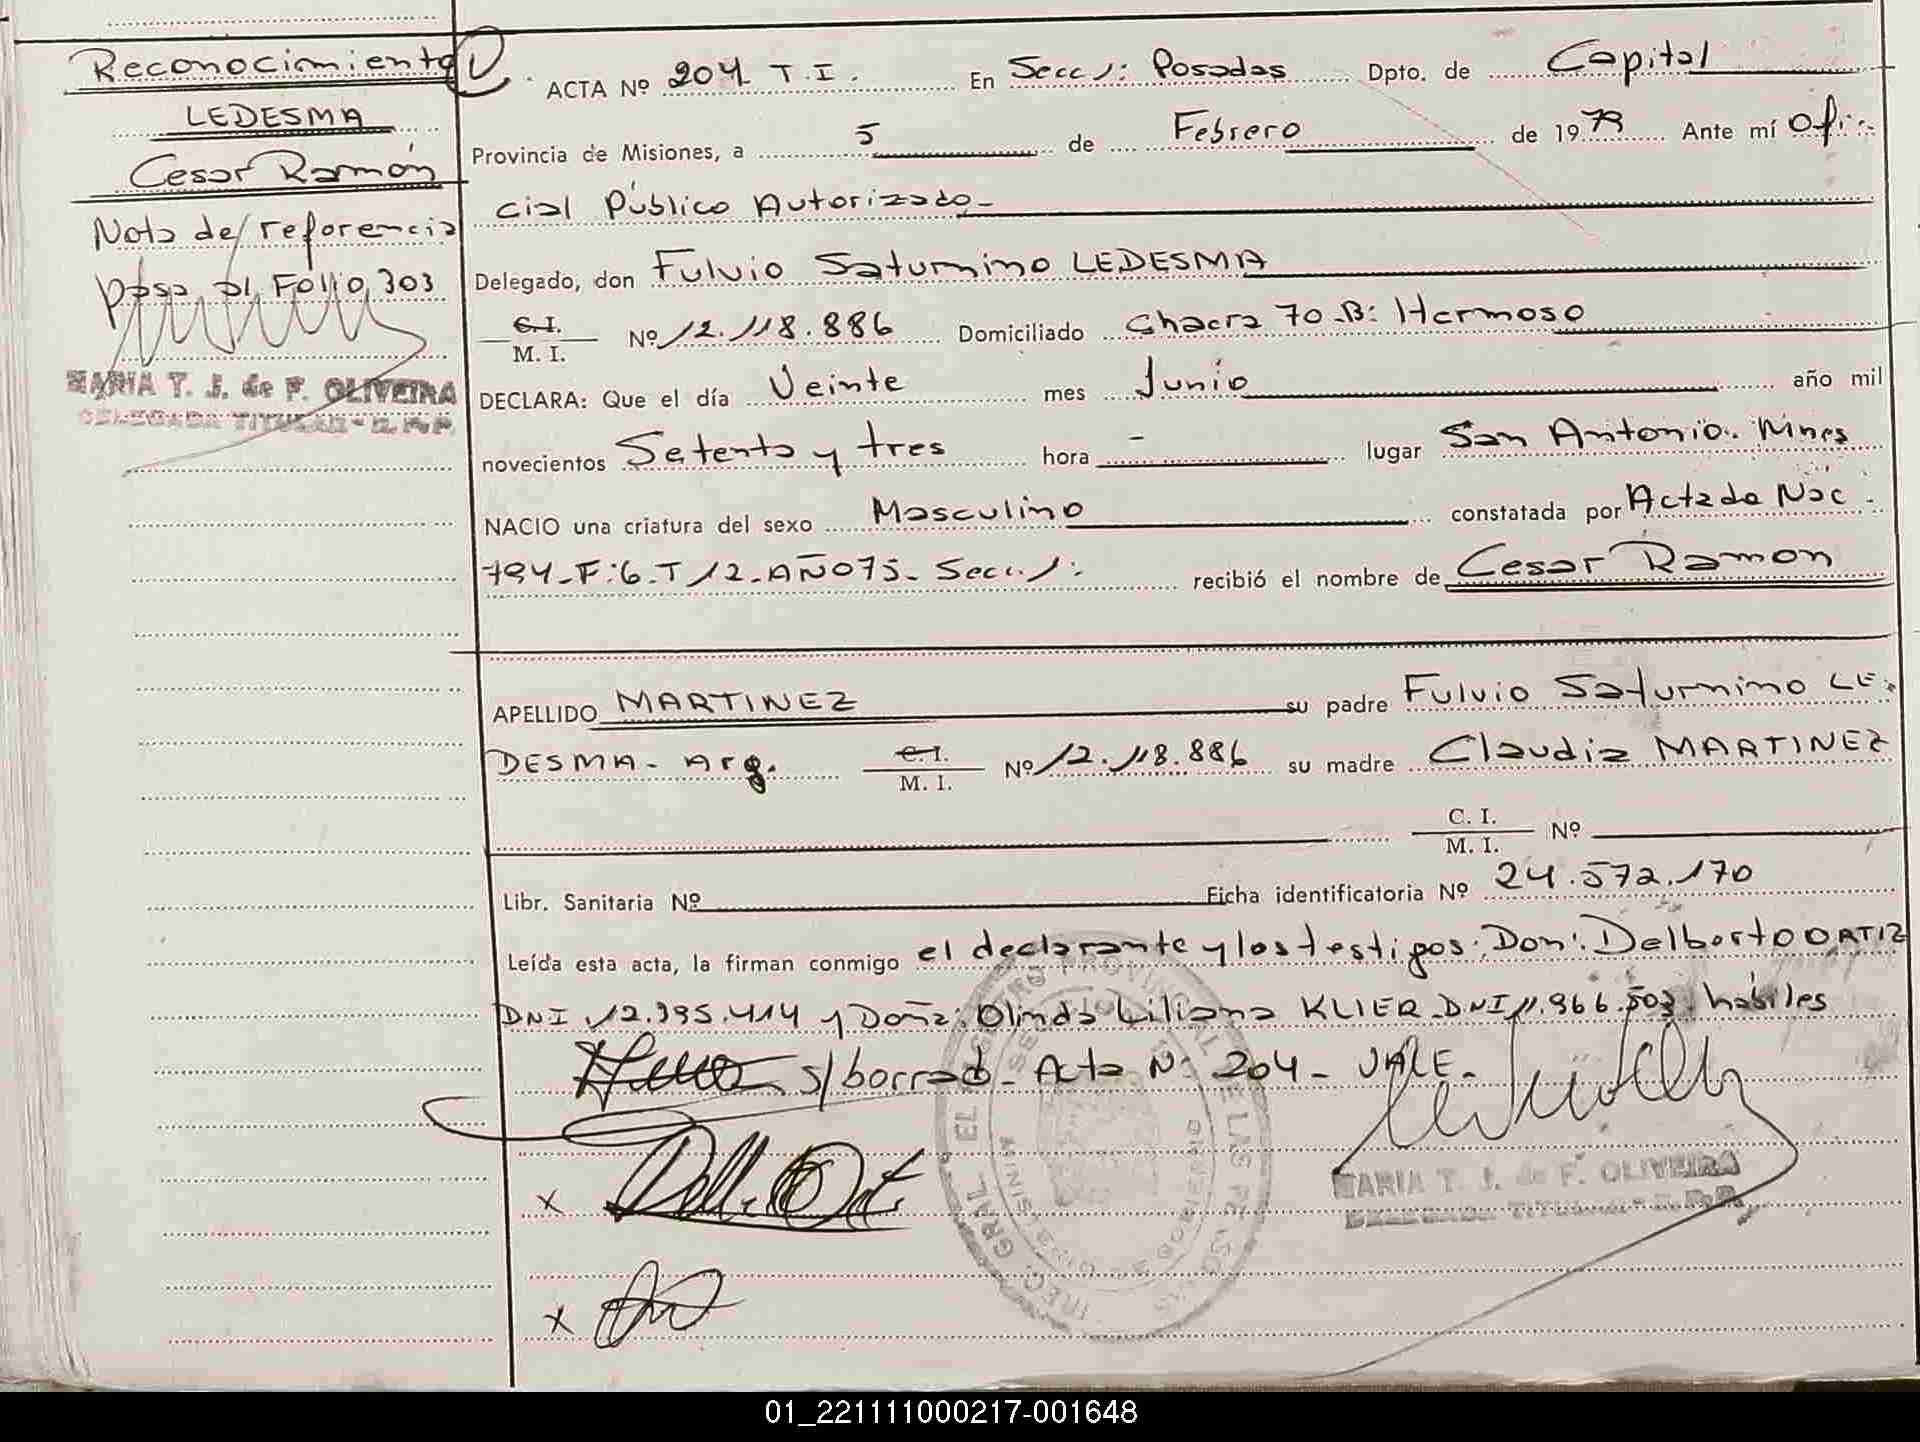 Reconocimiento
LEDESMA
Cesar Ramón
Nota de referencia
pasa al Folio 303
MARIA T. J. de F. OLIVEIRA
DELEGADA TITULAR - R.P.P.
ACTA Nº 204 T. I. En Secc 1: Posadas Dpto. de Capital
Provincia de Misiones, a 5 de Febrero de 1979 Ante mí Ofi-
cial Público Autorizado-
Delegado, don Fulvio Saturnino LEDESMA
C. I. M. I. Nº 12.118.886 Domiciliado Chacra 70-B: Hermoso
DECLARA: Que el día Veinte mes Junio año mil
novecientos Setenta y tres hora - lugar San Antonio. Mnes
NACIO una criatura del sexo Masculino constatada por Acta de Nac.
794-F:6-T 12-AÑO 75- Secc. 1: recibió el nombre de Cesar Ramon
APELLIDO MARTINEZ su padre Fulvio Saturnino LE-
DESMA- Arg. C. I. M. I. Nº 12.118.886 su madre Claudia MARTINEZ
C. I. M. I. Nº
Libr. Sanitaria Nº Ficha identificatoria Nº 24.572.170
Leída esta acta, la firman conmigo el declarante y los testigos: Don: Delberto ORTIZ
DNI 12.395.414 y Doña: Olinda Liliana KLIER DNI 11.966.503 hábiles
s/borrado- Acta N: 204- VALE-
x
MARIA T. J. de F. OLIVEIRA
DELEGADA TITULAR - R.P.P.
x
01_221111000217-001648